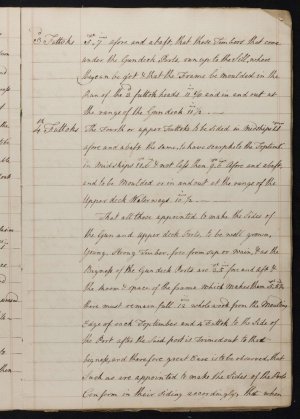 3 Futtocks
afore and abaft, that those Timbers that come
under the Gundeck Ports, run up to the Sill, where
they can be got & that the Frame be moulded in the
Run of the futtock heads and in and out at
the range of the Gundeck
4 Futtocks The Fourth or upper Futtocks to be sided in Midships
afore and abaft the same & have scarph to the Toptimb
in Midships & not less than Afore and abaft,
and to be Moulded or in and out at the range of the
Upper deck Waterways
That all those appointed to make the Sides of
the Gun and Upper deck Ports, to be well grown,
Young, Strong Timber, free from Sap or Wain, & as the
Bigness of the Gun deck Ports are fore and aft &
the room & space of the frame which makes them
there must remain full whole wood from the Moulding
Edge of each Toptimber and Futtock to the Side of
the Port after the said port is formed out to the
bigness, and therefore great Care is to be observed, that
Such as are appointed to make the Sides of the Ports
Conform in their Siding accordingly; that when